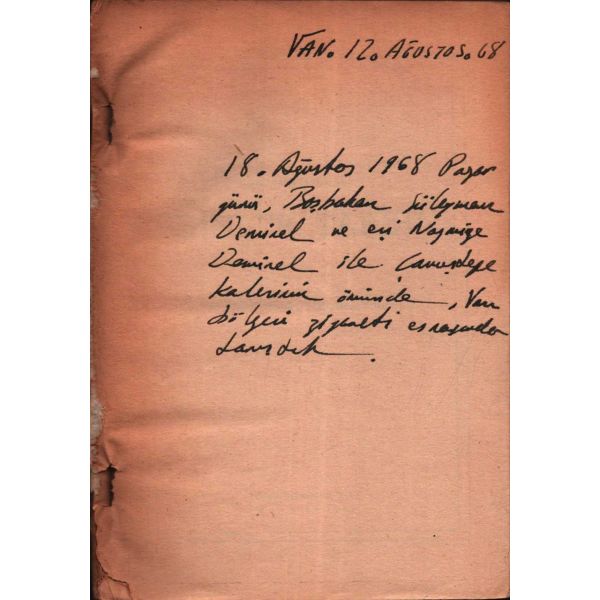 VAN. 12. AĞUSTOS. 68
18. Ağustos 1968 Pazar
günü, Başbakan Süleyman
Demirel ve eşi Nazmiye
Demirel ile Çavuştepe
kalesinin önünde, Van
bölgesi ziyareti esnasında
tanıştık.